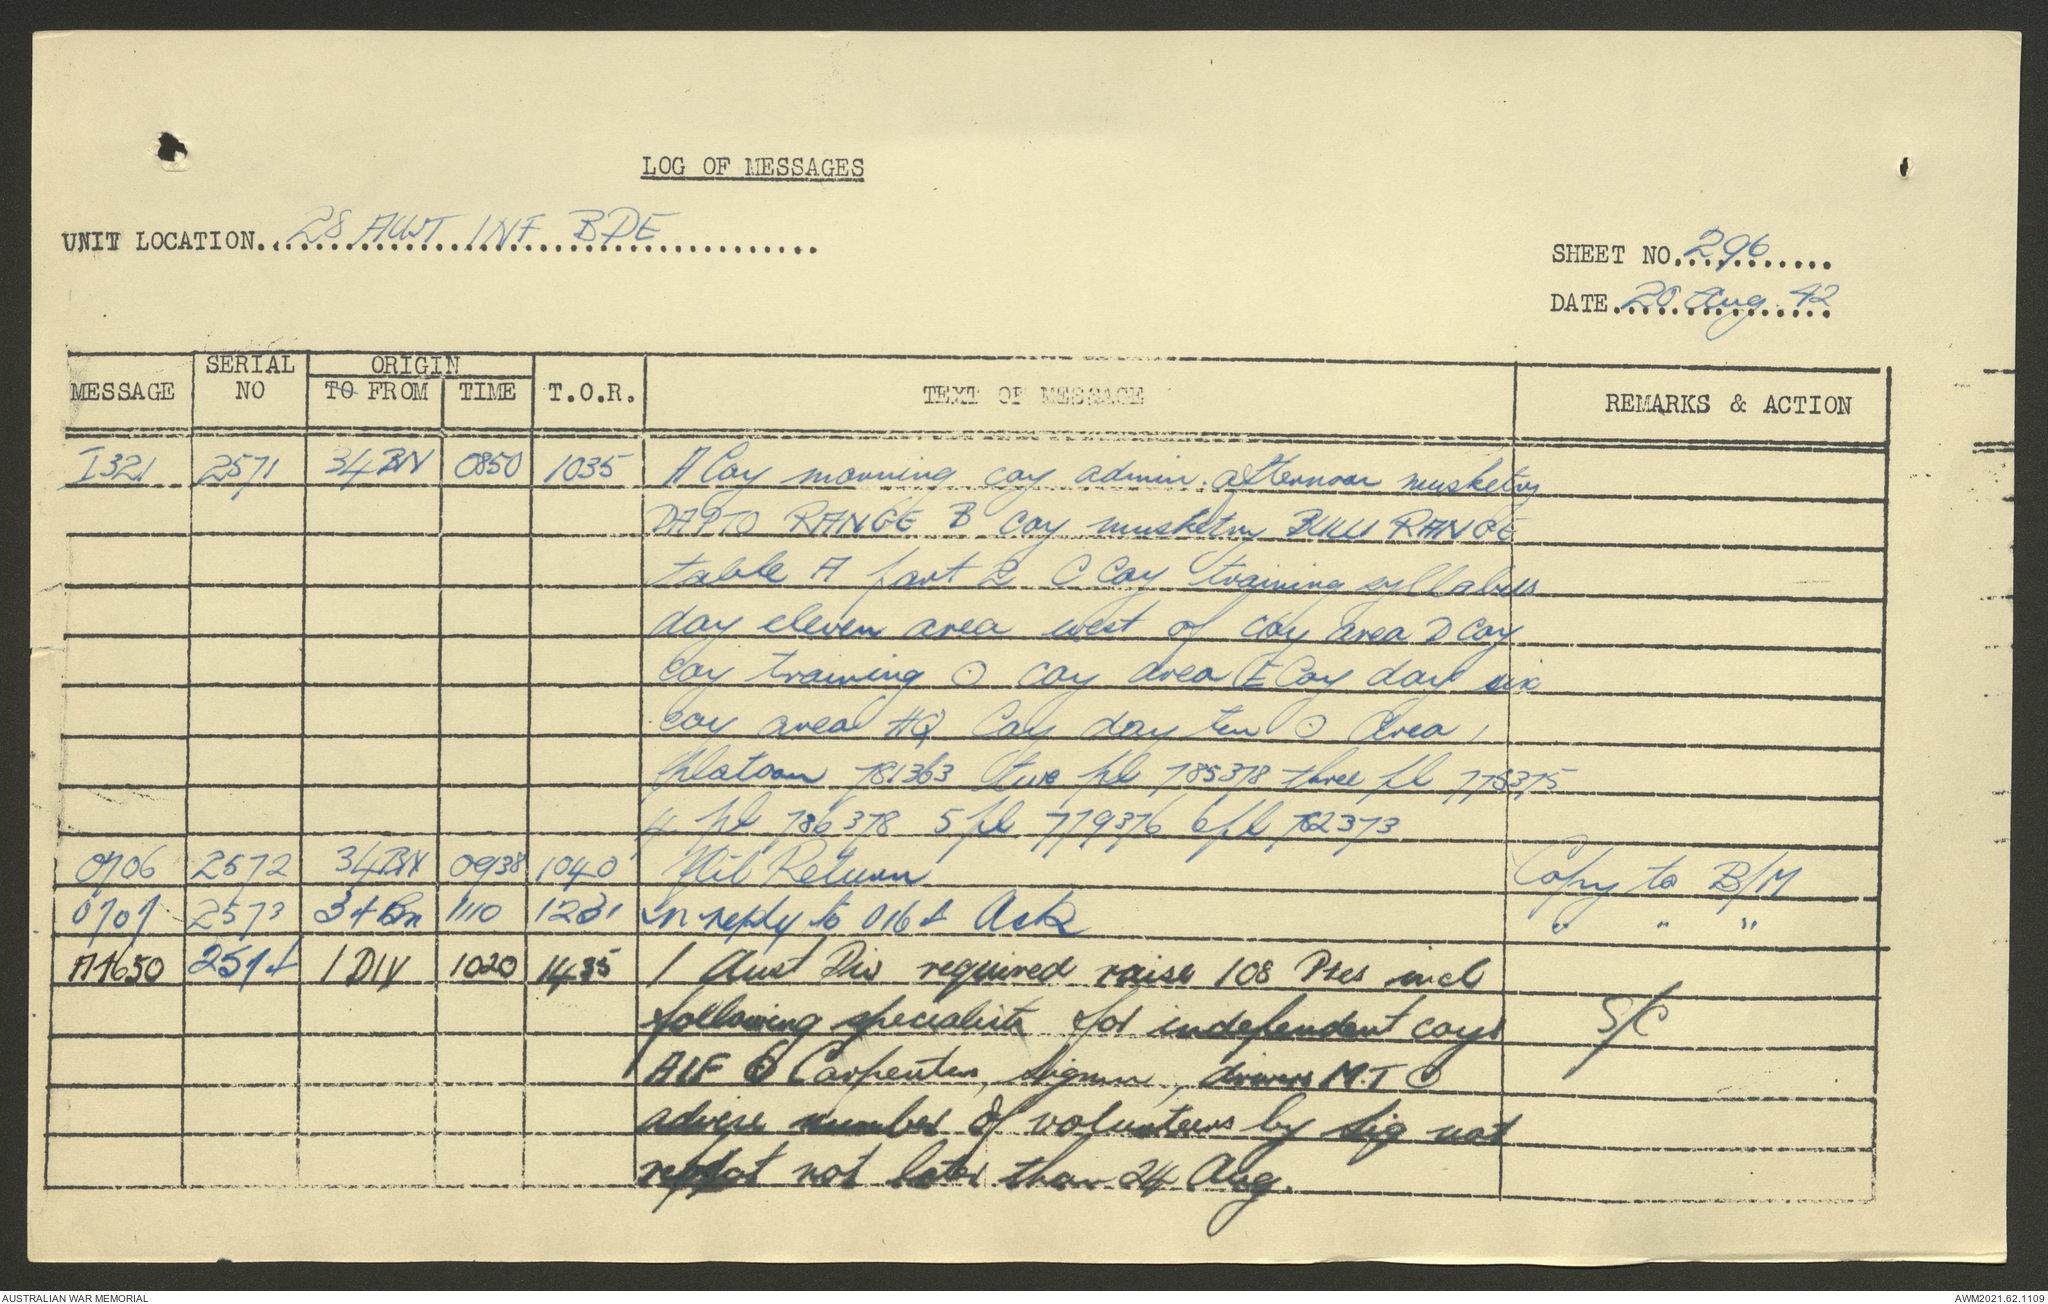 LOG OF MESSAGES
UNIT LOCATION 28 AUST INF BDE
SHEET NO 296
DATE 20 Aug 42
MESSAGE SERIAL NO ORIGIN TO FROM TIME T.O.R. TEXT OF MESSAGE REMARKS & ACTION
I321 2571 34 BN 0850 1035 A Coy morning coy admin. afternoon musketry
DAPTO RANGE B Coy musketry BULLI RANGE
table A part 2 C Coy training syllabus
day eleven area west of coy area D Coy
coy training ⊙ coy area E Coy day six
coy area HQ Coy day ten ⊙ Area 1
platoon 781363 two pl 785378 three pl 775375
4 pl 786378 5 pl 779376 6 pl 782373
0706 2572 34 BN 0938 1040 Nil Return Copy to B/M
0707 2573 34 Bn 1110 1231 In reply to 0164 Ack " " "
A4650 2574 1 DIV 1020 1435 1 Aust Div required raise 108 Ptes incl
following specialists for independent coys S/C
AIF ⊙ Carpenters, Sigmn, drivers M.T ⊙
advise number of volunteers by sig not
repeat not later than 24 Aug.
AUSTRALIAN WAR MEMORIAL
AWM2021.62.1109